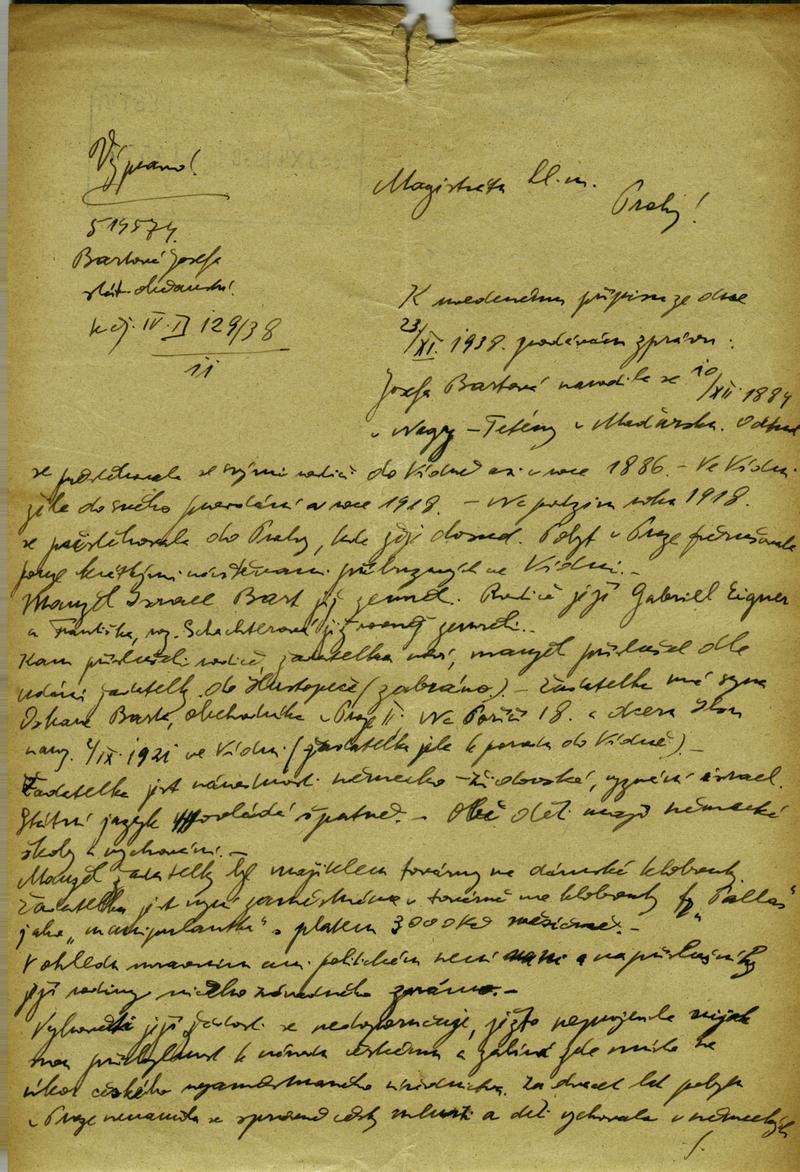 Výprano!
519574.
Bartová Josefa
stát. občanství.
k čj. IV. D 129/38
11
Magistrátu hl. m.
Prahy!
K uvedenému přípisu ze dne
23/XI. 1938. podávám zprávu:
Josefa Bartová narodila se 10/XII. 1884
v Nagy-Tetény v Maďarsku. Odtud
se přestěhovala se svými rodiči do Vídně asi v roce 1886. - Ve Vídni
žila do svého provdání v roce 1918. - Na podzim roku 1918.
se přestěhovala do Prahy, kde žije dosud. Pobyt v Praze přerušovala
pouze krátkými návštěvami příbuzných ve Vídni. -
Manžel Israel Bart již zemřel. Rodiče její Gabriel Eigner
a Františka, roz. Schachterová již rovněž zemřeli. -
Kam příslušeli rodiče, žadatelka neví, manžel příslušel dle
udání žadatelky do Hustopeče (zabráno). - Žadatelka má syna
Oskara Barta, obchodníka v Praze II. Na Poříčí 18. a dceru
nar. 4/IX. 1921 ve Vídni (žadatelka jela k porodu do Vídně). -
Žadatelka jest národnosti německo-židovské, vyznání israel.
Státní jazyk ovládá špatně. - Obě děti mají německé
školy a vychování. -
Manžel žadatelky byl majitelem továrny na dámské klobouky.
Žadatelka jest nyní zaměstnána v továrně na klobouky fy „Pallas"
jako „manipulantka" s platem 3000 Kč měsíčně. -
V ohledu mravním ani politickém není a na příslušníky
její rodiny nic závadného známo. -
Vyhovění její žádosti se nedoporučuje, ježto neprojevila nijak
svou příchylnost k národu českému a zabírá zde místo na
úkor českého nezaměstnaného úřednictva. Za dvacet let pobytu
v Praze nenaučila se správně česky mluviti a děti vychovala v německých